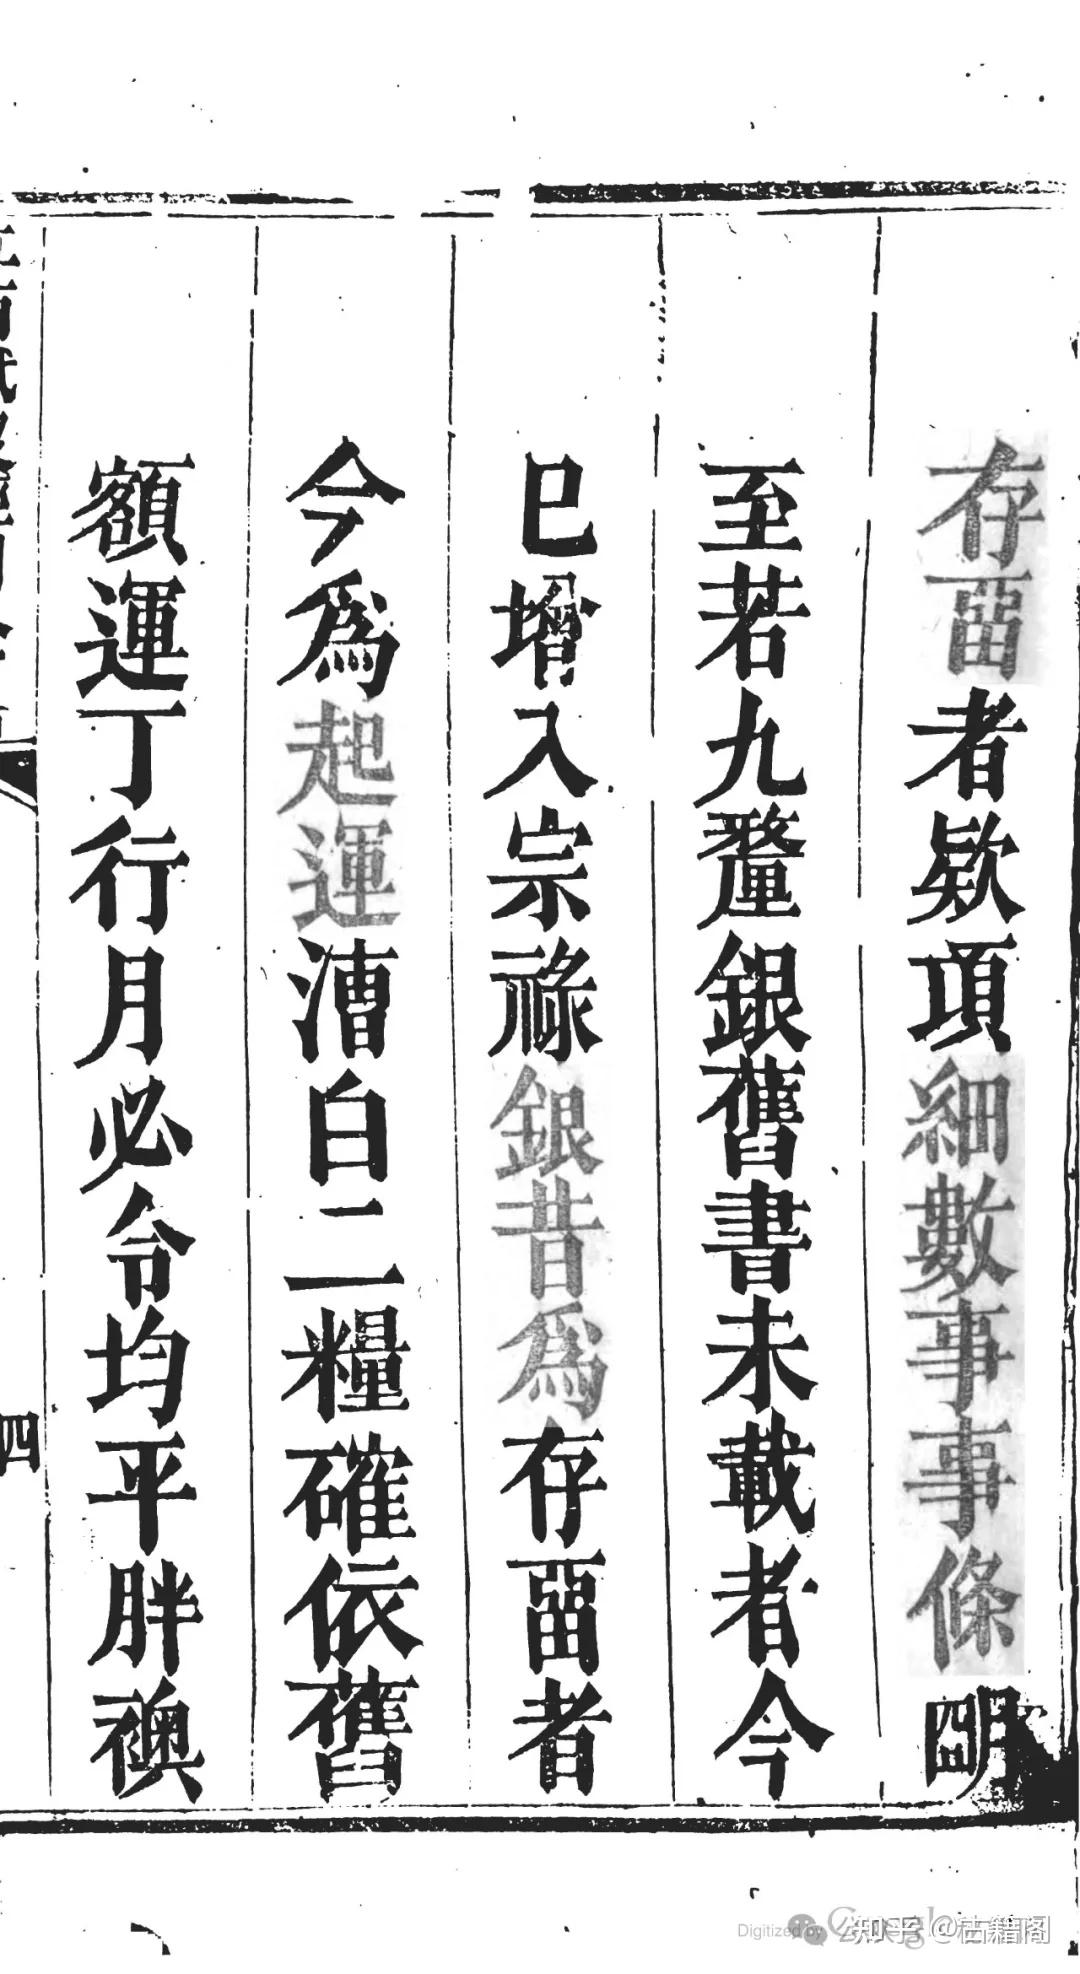 存畱者欵項細數事事條明
至若九釐銀舊書未載者今
已增入宗祿銀昔爲存畱者
今爲起運漕白二糧確依舊
額運丁行月必令均平胖襖
四
Digitized by Google
知乎 @古籍阁